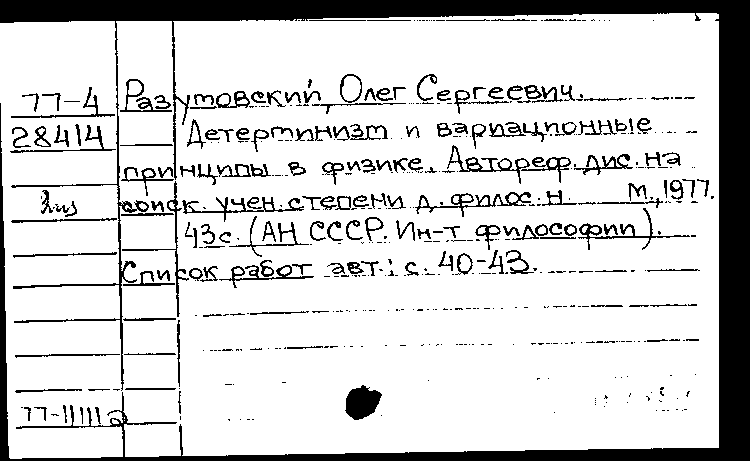 77-4 Разумовский, Олег Сергеевич.
28414 Детерминизм и вариационные
принципы в физике. Автореф. дис. на
соиск. учен. степени д. филос. н. М., 1977.
43с. (АН СССР. Ин-т философии).
Список работ авт.: с. 40-43.
77-11111а